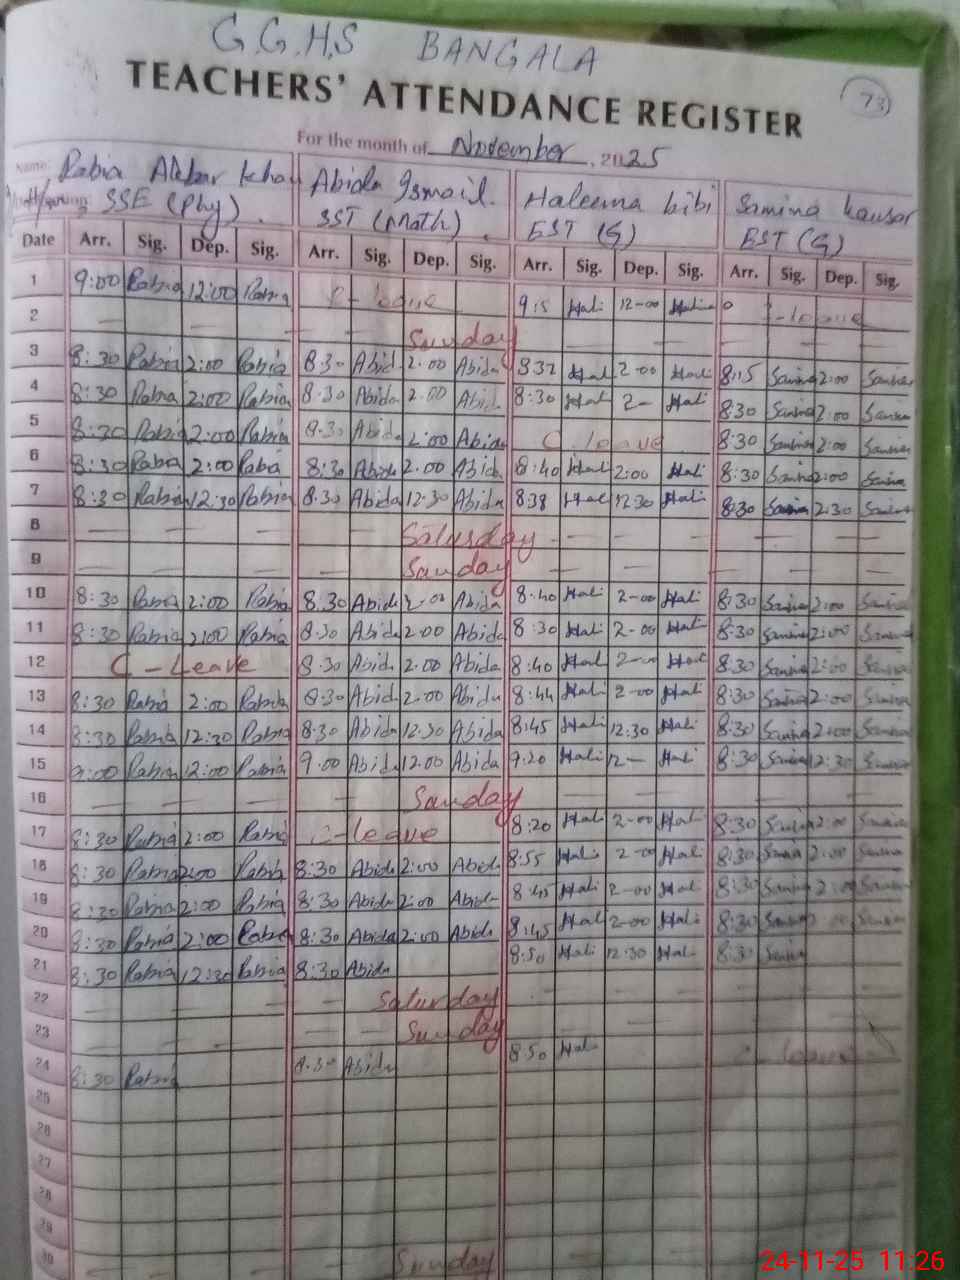 G.G.H.S BANGALA
TEACHERS' ATTENDANCE REGISTER
73
For the month of November, 2025
Name: Rabia Akbar Khan Abida Ismail. Haleema bibi Samina kausar
SSE (Phy). SST (Math). EST (G) EST (G)
Date Arr. Sig. Dep. Sig. Arr. Sig. Dep. Sig. Arr. Sig. Dep. Sig. Arr. Sig. Dep. Sig.
1 9:00 Rabia 12:00 Rabia C-leave 9:5 Hali 12-00 Hali -leave
2 Sunday
3 8:30 Rabia 2:00 Rabia 8.30 Abida 2.00 Abida 8:32 Hali 2-00 Hali 8:15 Samina 2:00 Samina
4 8:30 Rabia 2:00 Rabia 8.30 Abida 2.00 Abida 8:30 Hali 2- Hali 8:30 Samina 2:00 Samina
5 8:30 Rabia 2:00 Rabia 8.30 Abida 2:00 Abida C.leave 8:30 Samina 2:00 Samina
6 8:30 Rabia 2:00 Rabia 8:30 Abida 2.00 Abida 8:40 Hali 2:00 Hali 8:30 Samina 2:00 Samina
7 8:30 Rabia 12:30 Rabia 8.30 Abida 12.30 Abida 8:38 Hali 12:30 Hali 8:30 Samina 2:30 Samina
8 Saturday
9 Sunday
10 8:30 Rabia 2:00 Rabia 8.30 Abida 2.00 Abida 8:40 Hali 2-00 Hali 8:30 Samina 2:00 Samina
11 8:30 Rabia 2:00 Rabia 8.30 Abida 2.00 Abida 8:30 Hali 2-00 Hali 8:30 Samina 2:00 Samina
12 C-Leave 8.30 Abida 2.00 Abida 8:40 Hali 2-00 Hali 8:30 Samina 2:00 Samina
13 8:30 Rabia 2:00 Rabia 8.30 Abida 2.00 Abida 8:44 Hali 2-00 Hali 8:30 Samina 2:00 Samina
14 8:30 Rabia 12:30 Rabia 8:30 Abida 12.30 Abida 8:45 Hali 12:30 Hali 8:30 Samina 2:00 Samina
15 9:00 Rabia 12:00 Rabia 9.00 Abida 12.00 Abida 9:20 Hali 12- Hali 8:30 Samina 12:30 Samina
16 Sunday
17 8:30 Rabia 2:00 Rabia C-leave 8:20 Hali 2-00 Hali 8:30 Samina 2:00 Samina
18 8:30 Rabia 2:00 Rabia 8:30 Abida 2:00 Abida 8:55 Hali 2-00 Hali 8:30 Samina 2:00 Samina
19 8:30 Rabia 2:00 Rabia 8:30 Abida 2:00 Abida 8:45 Hali 2-00 Hali 8:30 Samina 2:00 Samina
20 8:30 Rabia 2:00 Rabia 8:30 Abida 2:00 Abida 8:45 Hali 2-00 Hali 8:30 Samina Samina
21 8:30 Rabia 12:30 Rabia 8:30 Abida 8:50 Hali 12:30 Hali 8:30 Samina
22 Saturday
23 Sunday
24 8:30 Rabia 8.30 Abida 8:50 Hali leave
25
26
27
28
29
30 Sunday
24-11-25 11:26